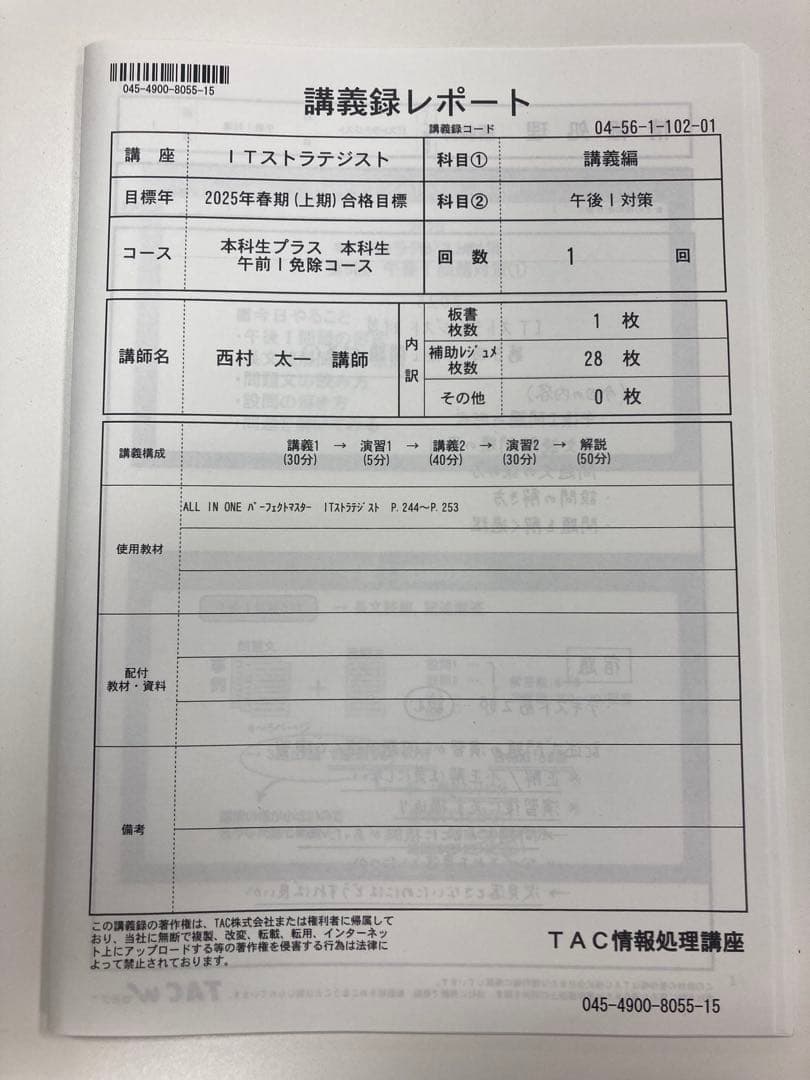 045-4900-8055-15
講義録レポート
講義録コード 04-56-1-102-01
講 座 ITストラテジスト 科目① 講義編
目標年 2025年春期(上期)合格目標 科目② 午後Ⅰ対策
コース 本科生プラス 本科生
午前Ⅰ免除コース
回 数 1 回
講師名 西村 太一 講師
内訳
板書枚数 1 枚
補助レジュメ枚数 28 枚
その他 0 枚
講義構成 講義1 → 演習1 → 講義2 → 演習2 → 解説
(30分) (5分) (40分) (30分) (50分)
使用教材 ALL IN ONE パーフェクトマスター ITストラテジスト P.244~P.253
配付
教材・資料
備考
この講義録の著作権は、TAC株式会社または権利者に帰属して
おり、当社に無断で複製、改変、転載、転用、インターネッ
ト上にアップロードする等の著作権を侵害する行為は法律に
よって禁止されております。
TAC情報処理講座
045-4900-8055-15